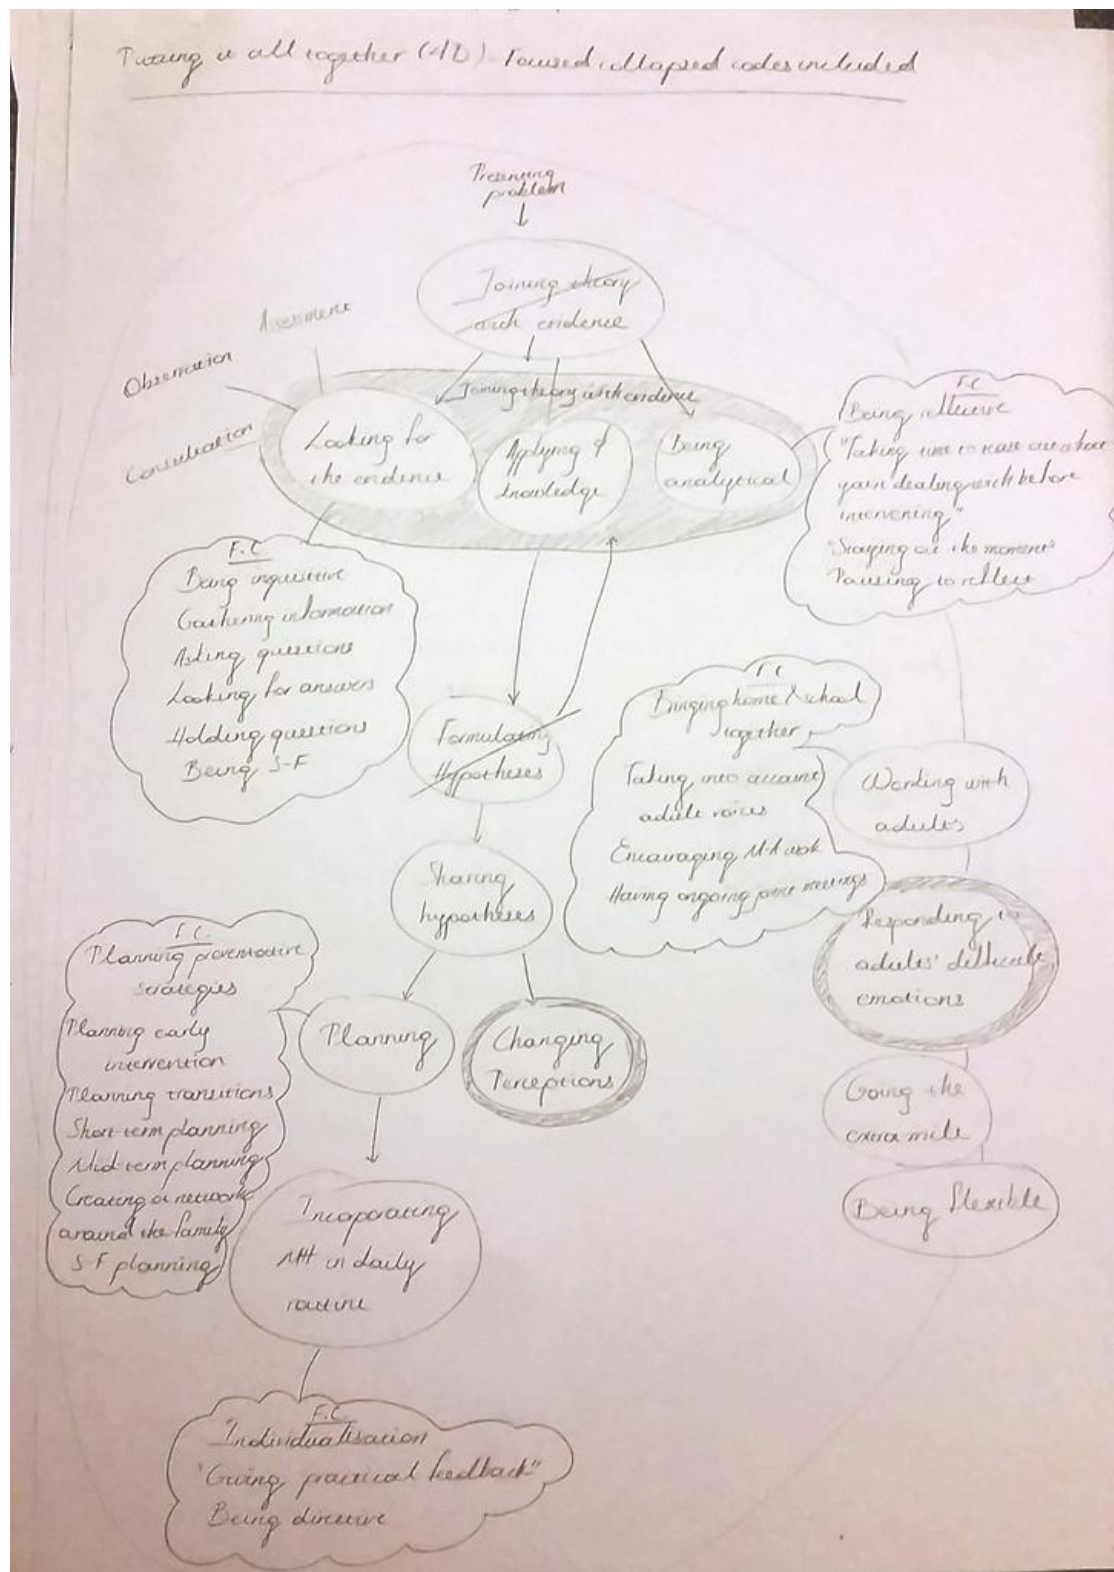 Putting it all together (4D) - Focused collapsed codes included
Presenting
problem
Joining theory
with evidence
Assessment
Observation
Consultation
Joining theory with evidence
Looking for
the evidence
Applying
knowledge
Being
analytical
F.C
Being reflective
"Taking time to tease out what
you're dealing with before
intervening"
"Staying in the moment"
Pausing to reflect
F.C
Being inquisitive
Gathering information
Asking questions
Looking for answers
Holding questions
Being S-F
Formulating
Hypotheses
F.C
Bringing home & school
together
Taking into account
adult voices
Encouraging M-A work
Having ongoing joint meetings
Working with
adults
Sharing
hypotheses
Responding to
adults' difficult
emotions
F.C.
Planning preventative
strategies
Planning early
intervention
Planning transitions
Short-term planning
Mid-term planning
Creating a network
around the family
S-F planning
Planning
Changing
Perceptions
Going the
extra mile
Being flexible
Incorporating
MH in daily
routine
F.C
Individualisation
"Giving practical feedback"
Being directive